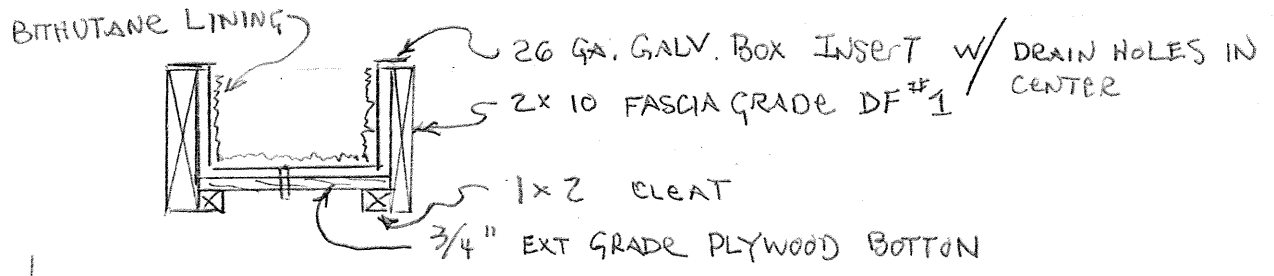 BITHUTANE LINING
26 GA. GALV. BOX INSERT W/ DRAIN HOLES IN
CENTER
2X10 FASCIA GRADE DF #1
1X2 CLEAT
3/4" EXT GRADE PLYWOOD BOTTON